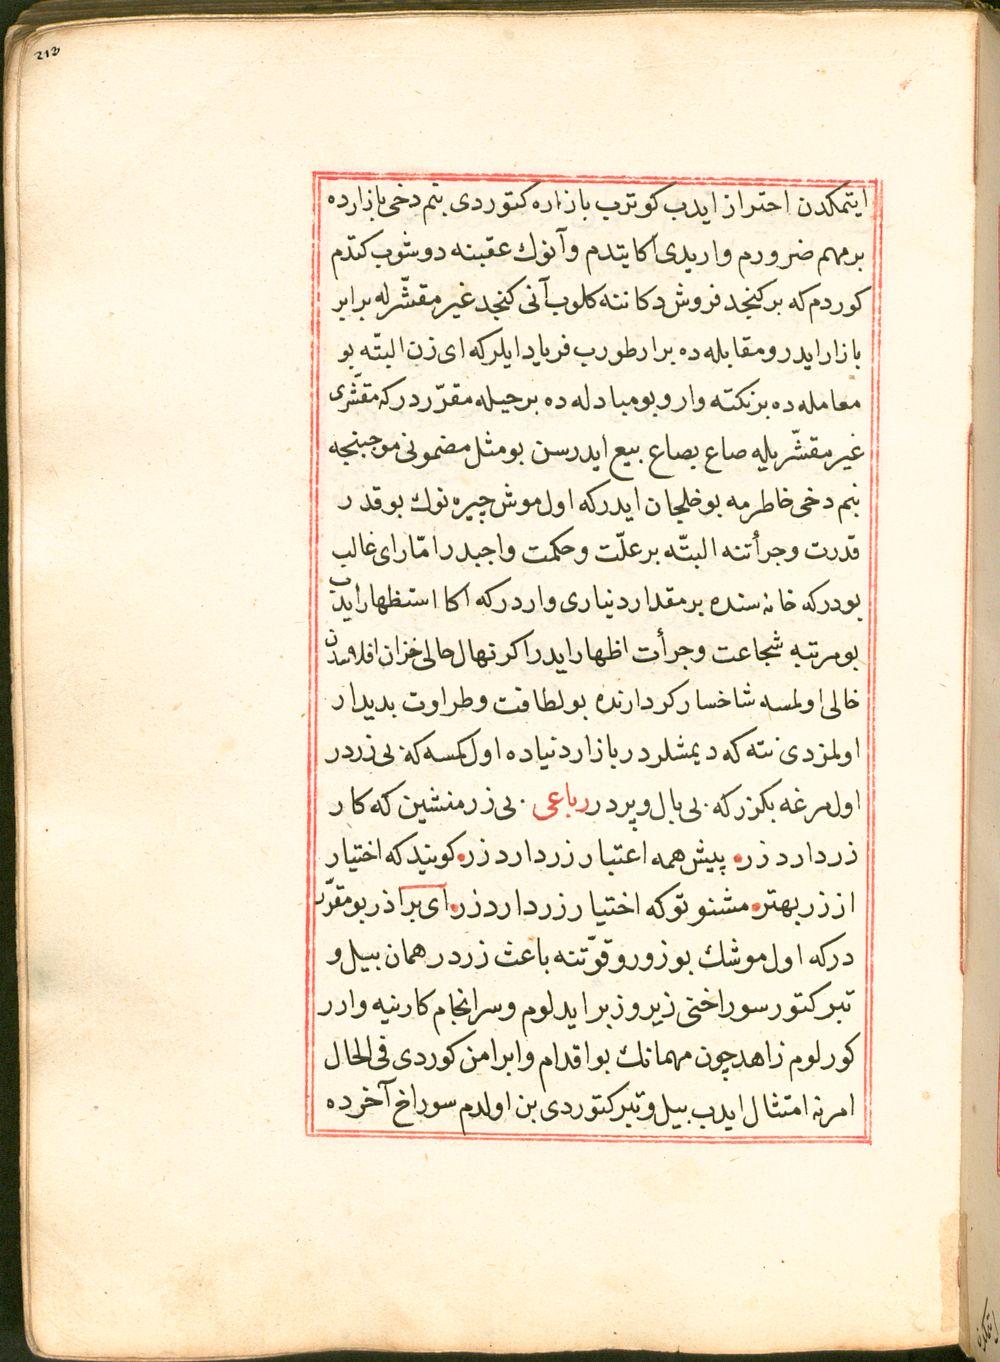 212
ایتمكدن احتراز ایدب كوتریب بازاره كتوردی بنم دخی بازارده
بر مهم ضرورم وار یدی اكا یتدم و آنوك عقبنه دوشوب كتدم
كوردم كه بر كنجد فروش دكاننه كلوب آنی كنجد غیر مقشّر له برابر
بازار ایدر و مقابله ده بر ار طورب فریاد ایلر كه ای زن البتّه بو
معامله ده بر نكته وار و بو مبادله ده بر حیله مقرّردر كه مقشّری
غیر مقشّر یله صاع بصاع بیع ایدرسن بو مثل مضمونی موجبنجه
بنم دخی خاطرمه بو خلجان ایدر كه اول موش چیره نوك بو قدر
قدرت و جرأتنه البتّه بر علّت و حكمت واجبدر امّا رای غالب
بودر كه خانه سنده بر مقدار دنیاری واردر كه اكا استظهار ایدب
بو مرتبه شجاعت و جرأت اظهار ایدر اكر نهال حالی خزان افلاسدن
خالی اولمسه شاخسار كردارنده بو لطافت و طراوت بدیدار
اولمزدی نته كه دیمشلردر بازار دنیاده اول كمسه كه بی زردر
اول مرغه بكزر كه بی بال و پردر رباعی بی زر منشین كه كار
زر دارد زر پیش همه اعتبار زر دارد زر كویند كه اختیار
از زر بهتر مشنو تو كه اختیار زر دارد زر ای برادر بو مقرّر
در كه اول موشك بو زور و قوّتنه باعث زردر همان بیل و
تبر كتور سوراخنی زیر و زبر ایدلوم و سرانجام كارنیه وارر
كورلوم زاهد چون مهمانك بو اقدام و ابرامن كوردی فی الحال
امرنه امتثال ایدب بیل و تبر كتوردی بن اولدم سوراخ آخرده